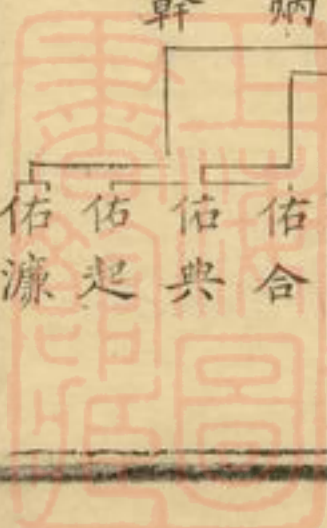 炳
幹
佑合
佑典
佑起
佑濂